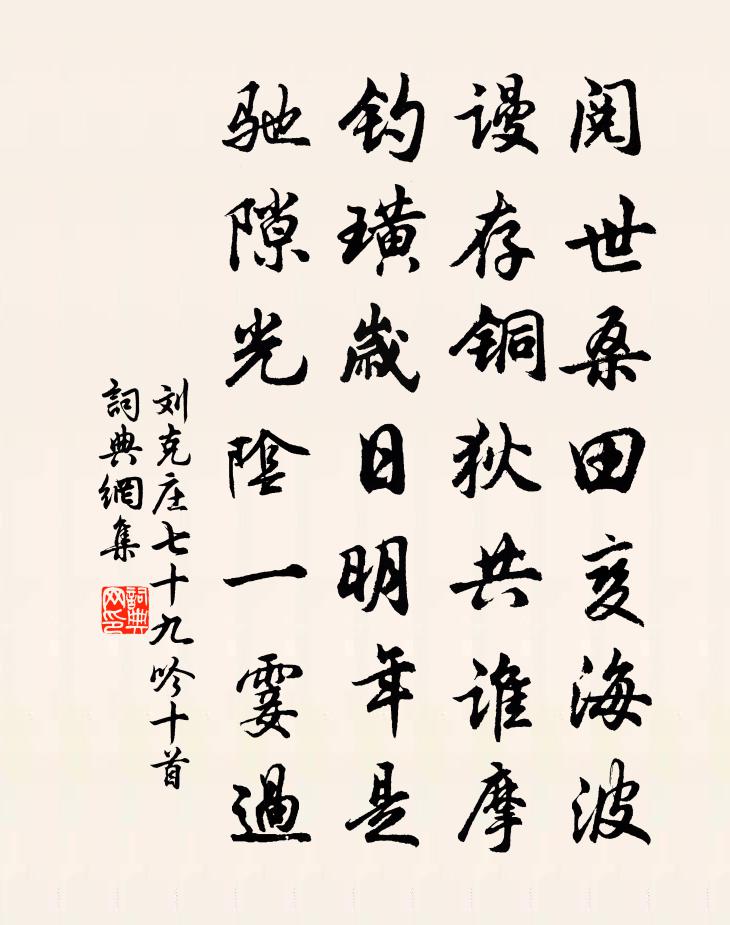 阅世桑田变海波
谩存铜狄共谁摩
钓璜歲日明年是
驰隙光陰一霎過
刘克庄七十九吟十首
詞典網集
詞典网印